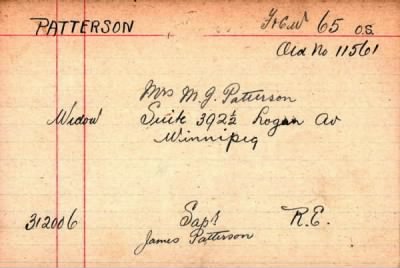 PATTERSON 65 O.S.
Old No 11561
Mrs M. J. Patterson
Widow Suite 392½ Logan Av
Winnipeg
312006 Sapr R.E.
James Patterson